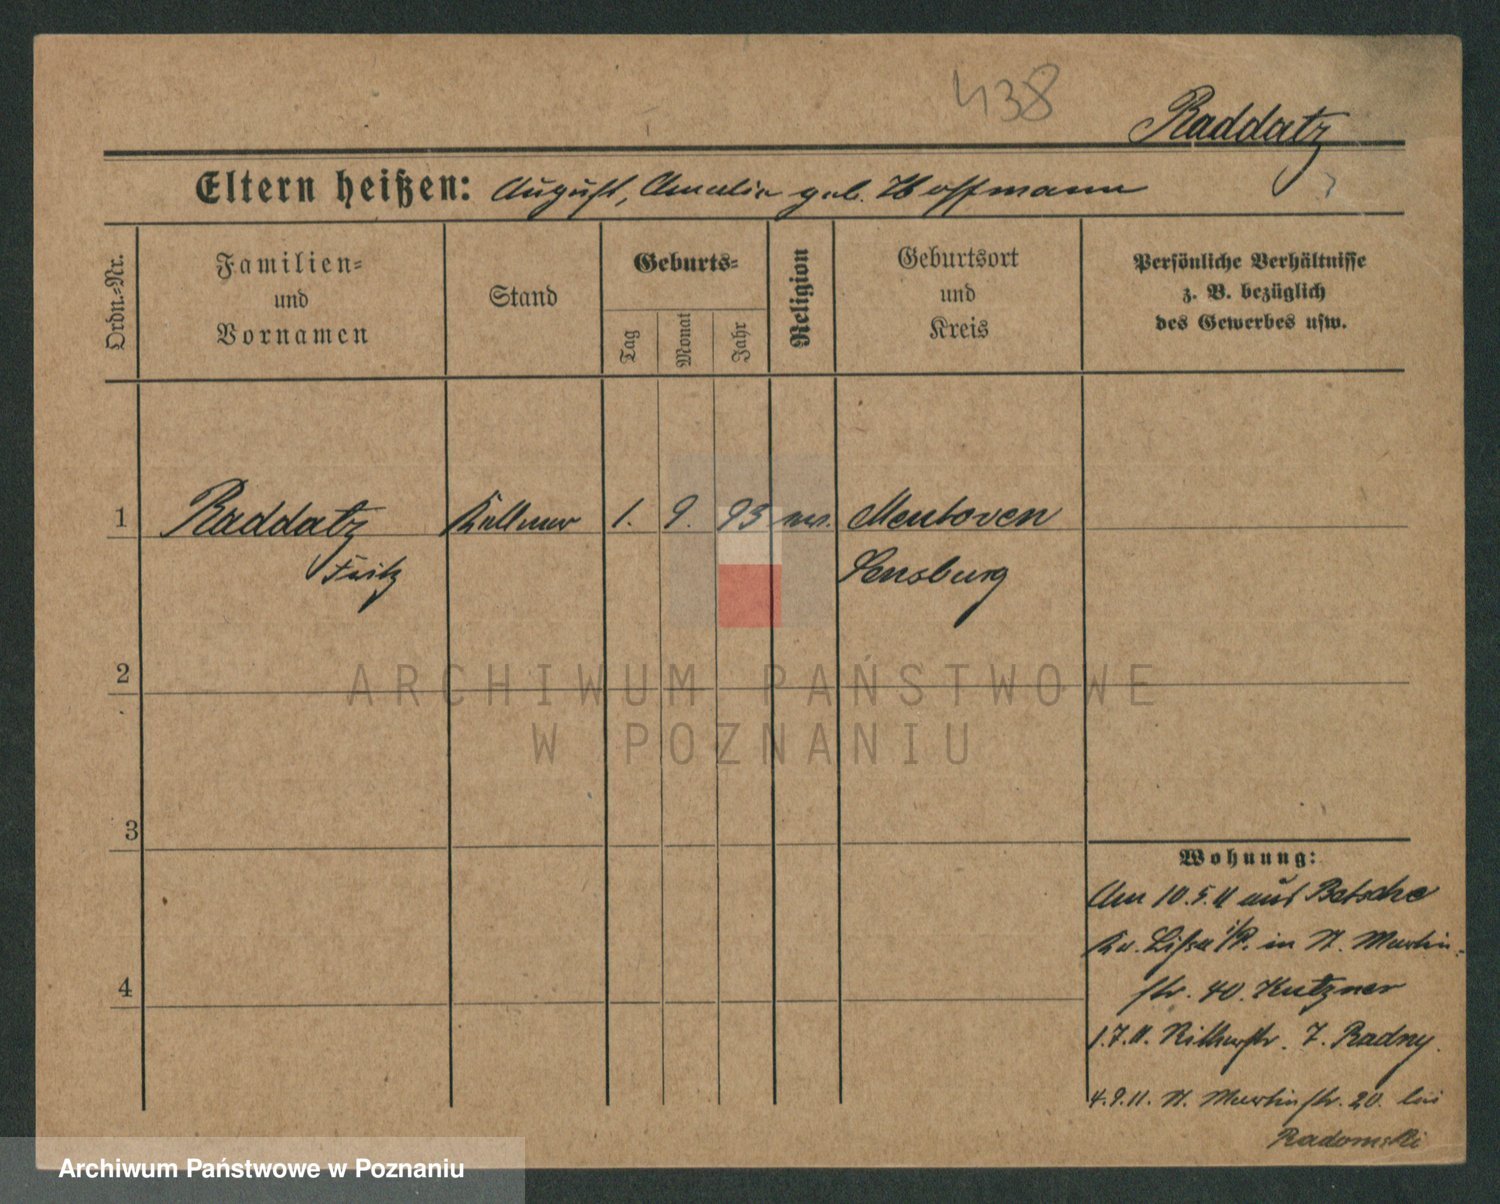 438
Raddatz
Eltern heißen: August, Amalie geb. Hoffmann
Ordn.=Nr.
Familien=
und
Vornamen
Stand
Geburts=
Tag
Monat
Jahr
Religion
Geburtsort
und
Kreis
Persönliche Verhältnisse
z. B. bezüglich
des Gewerbes usw.
1 Raddatz Kellner 1. 9. 93 ev. Mentoven
Fritz Sensburg
2
ARCHIWUM PAŃSTWOWE
W POZNANIU
3
4
Wohnung:
Am 10.5.11 aus Betsche
Kr. Lissa i/P. in St. Martin-
str. 40. Kutzner
1.7.11. Ritterstr. 7. Radny.
4.9.11. St. Martinstr. 20. bei
Radomski
Archiwum Państwowe w Poznaniu